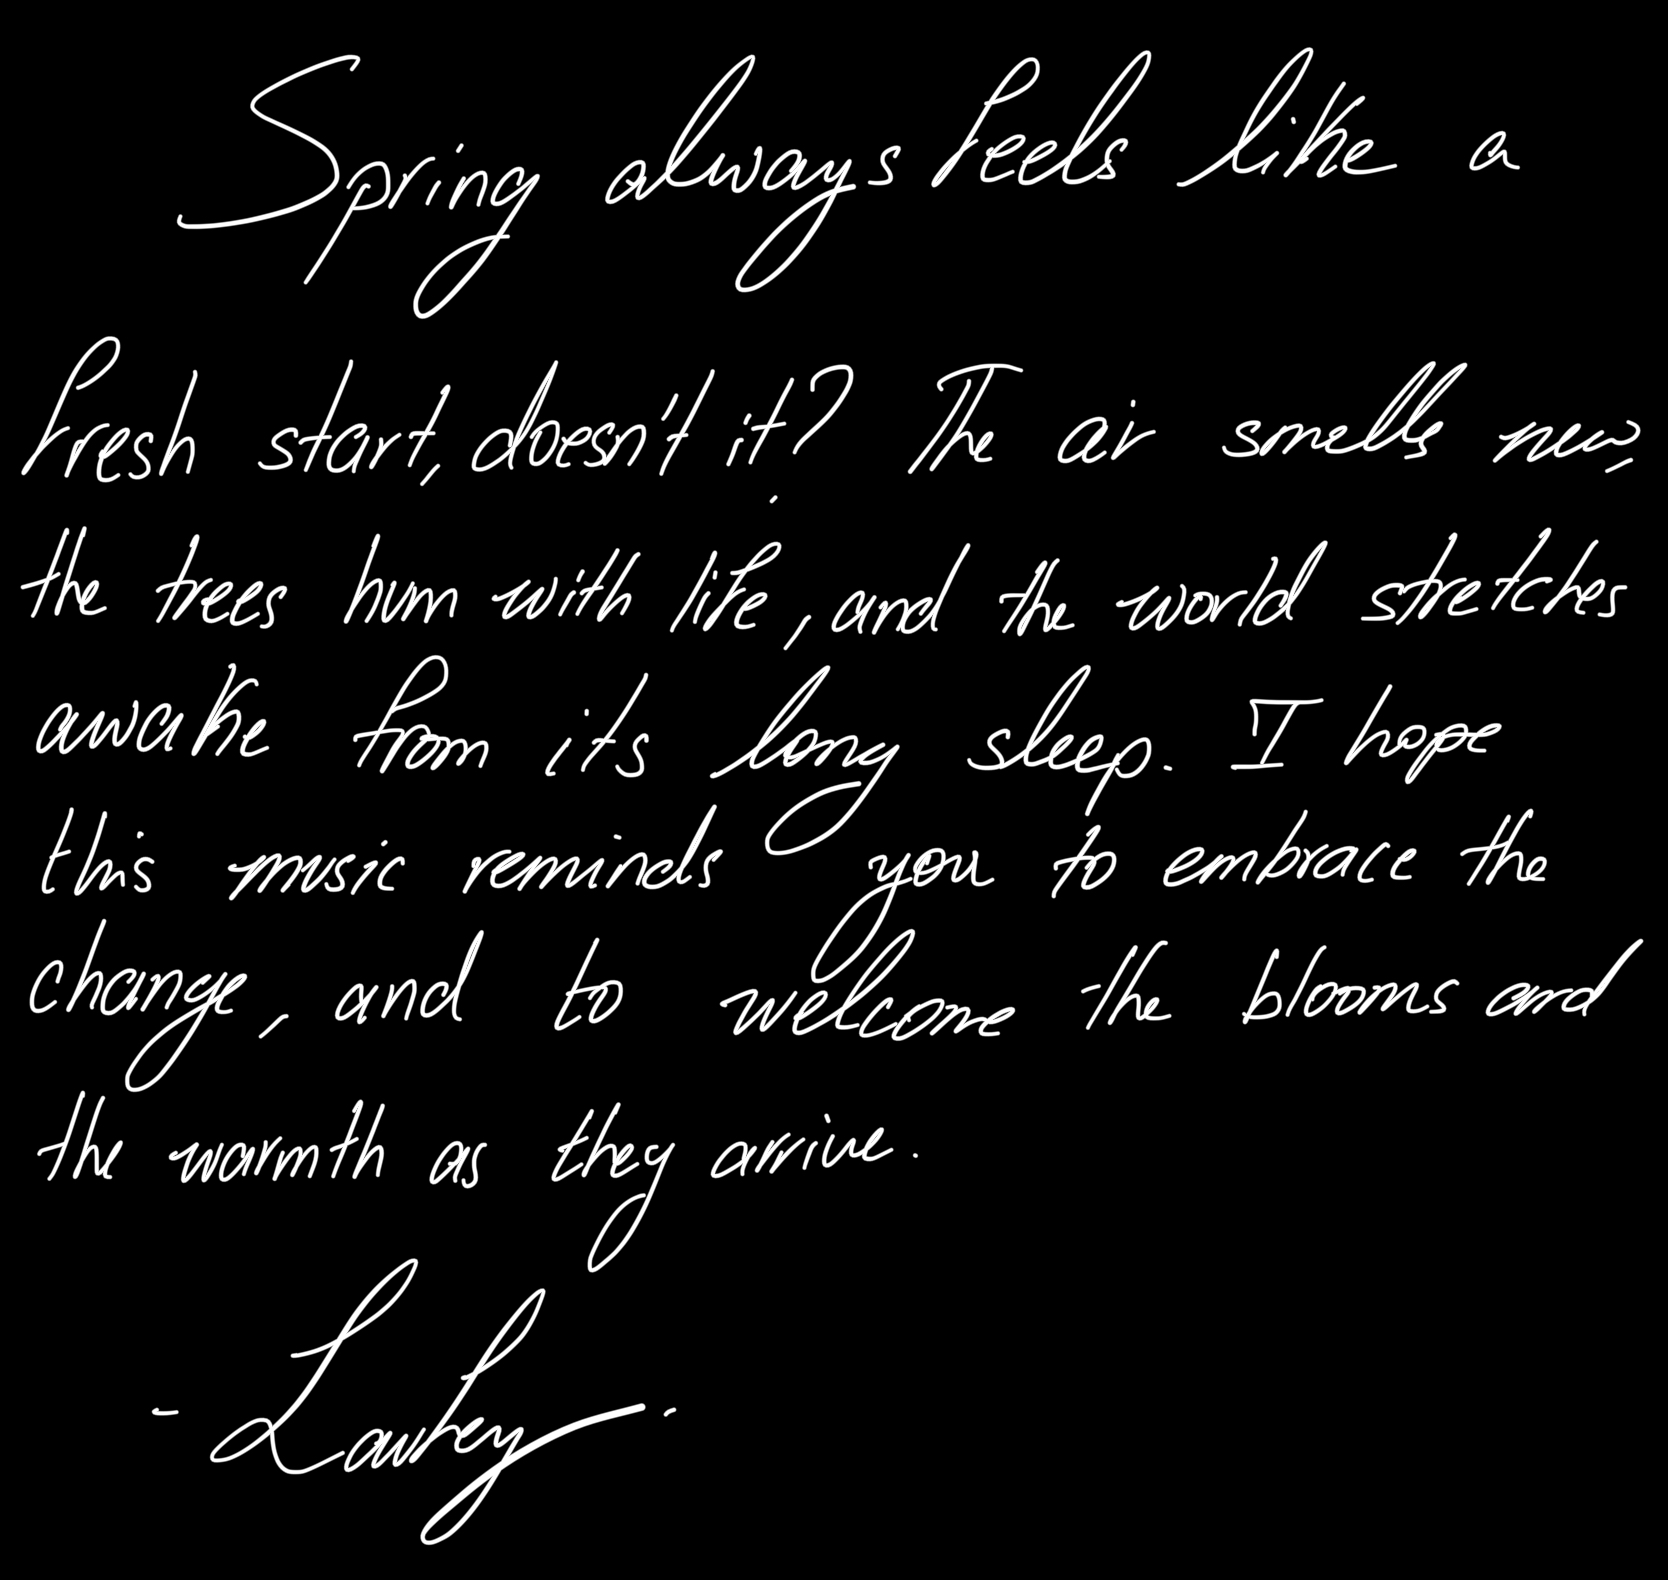 Spring always feels like a
fresh start, doesn't it? The air smells new,
the trees hum with life, and the world stretches
awake from its long sleep. I hope
this music reminds you to embrace the
change, and to welcome the blooms and
the warmth as they arrive.
- Laufey -